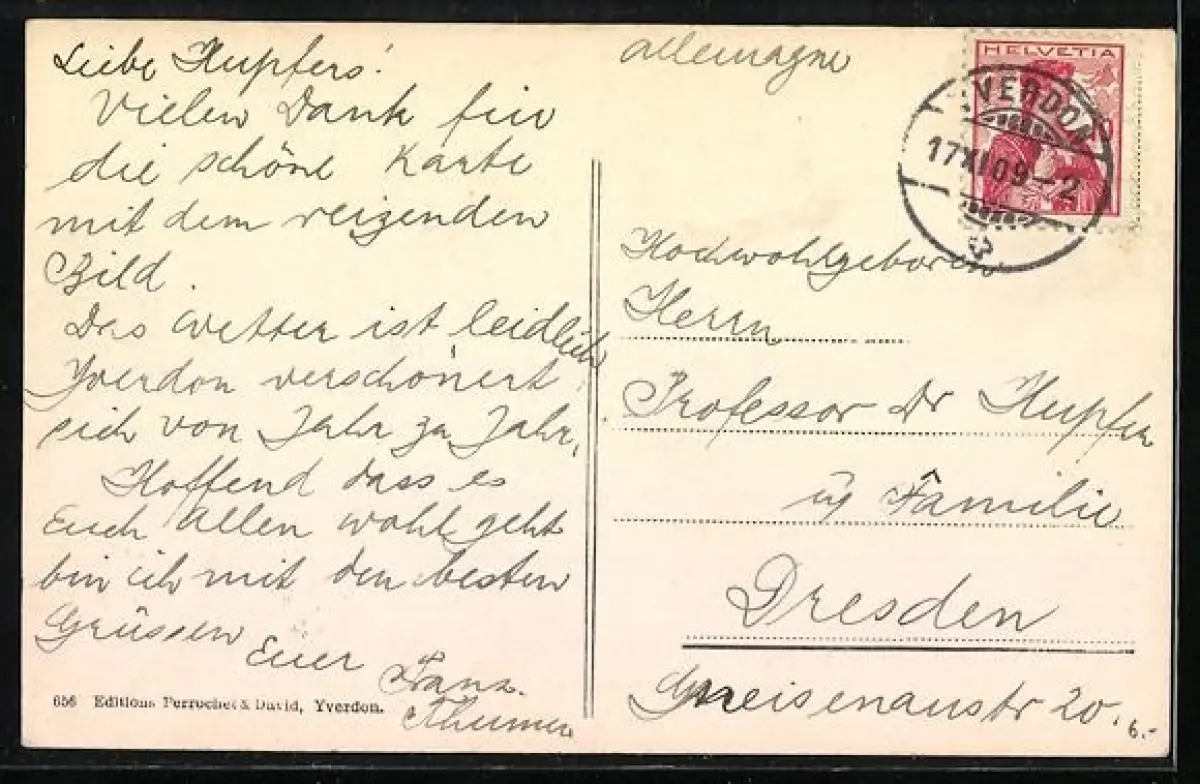 Liebe Kupfers!
Vielen Dank für
die schöne Karte
mit dem reizenden
Bild.
Das Wetter ist leidlich
Yverdon verschönert
sich von Jahr zu Jahr,
Hoffend dass es
Euch allen wohl geht
bin ich mit den besten
Grüssen
Euer Franz
656 Editions Perrochet & David, Yverdon.
Allemagne
HELVETIA
YVERDON
17 XI 09-2
Hochwohlgeboren
Herrn
Professor Dr Kupfer
u Familie
Dresden
Gneisenaustr 20.
6.-